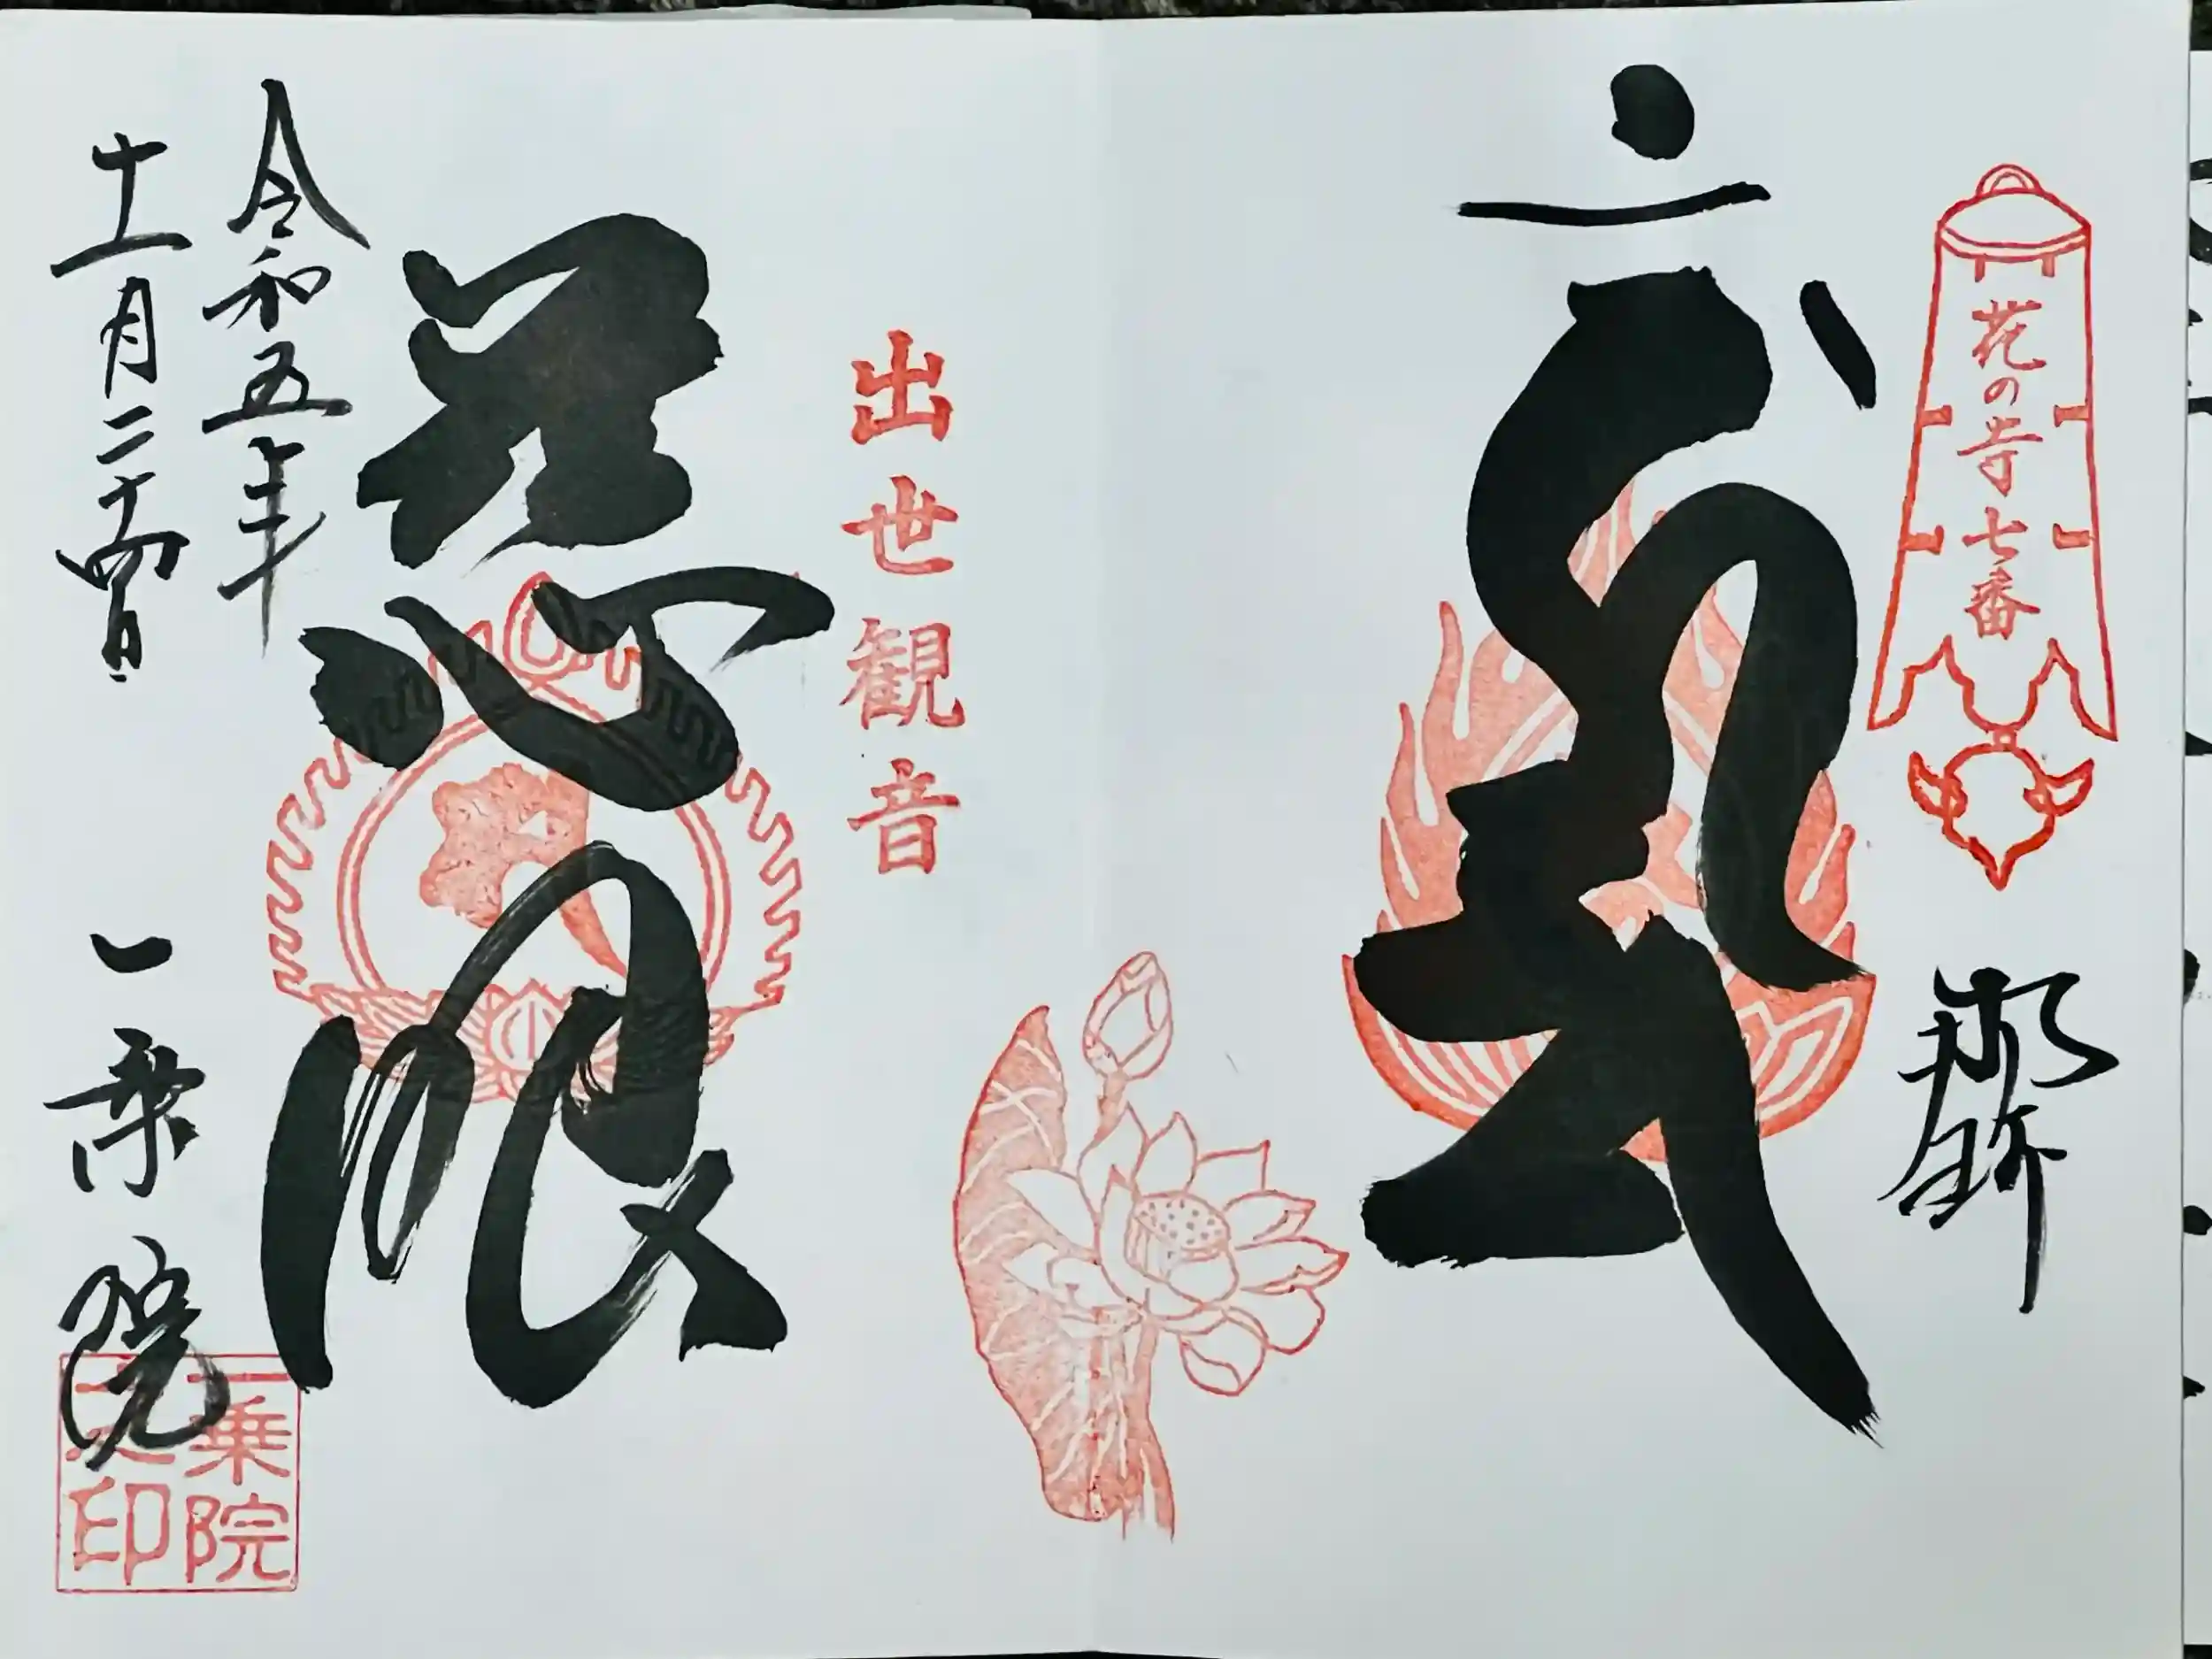 花の寺七番
御詠
出世観音
慈眼
令和五年
十一月二十四日
一乗院
一乗院
印